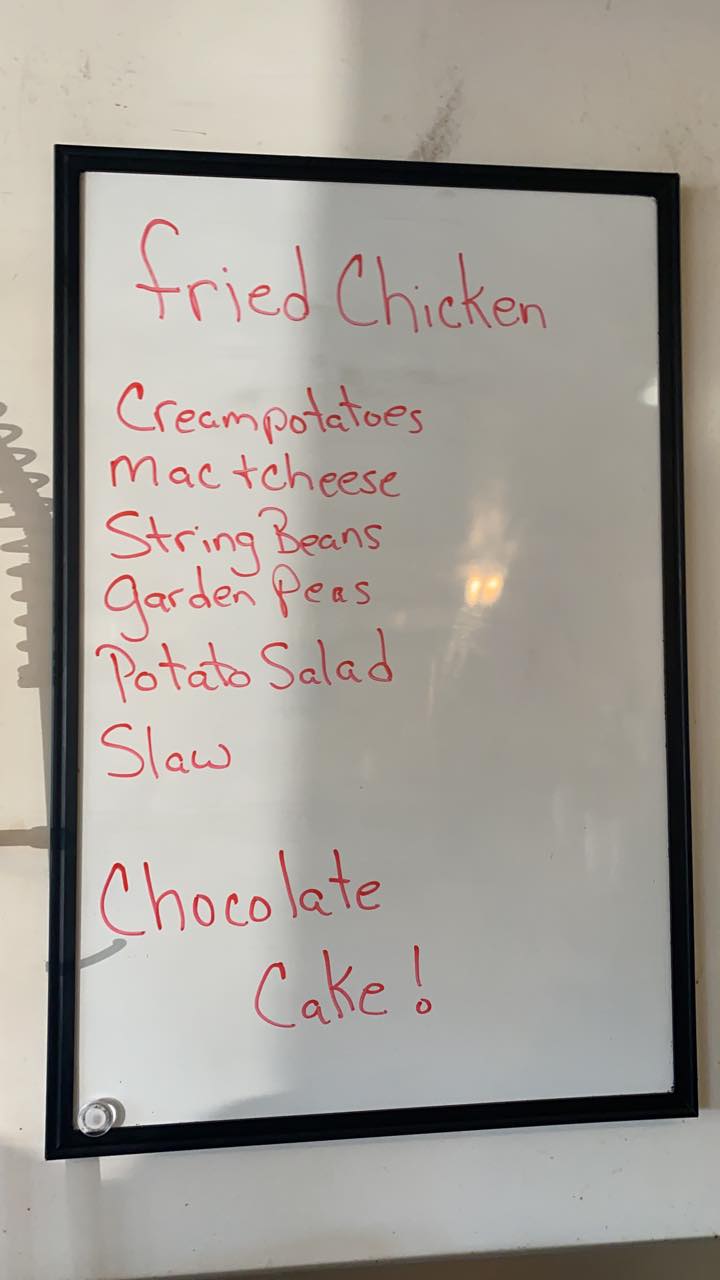 fried Chicken
Creampotatoes
Mac + cheese
String Beans
garden Peas
Potato Salad
Slaw
Chocolate
Cake!